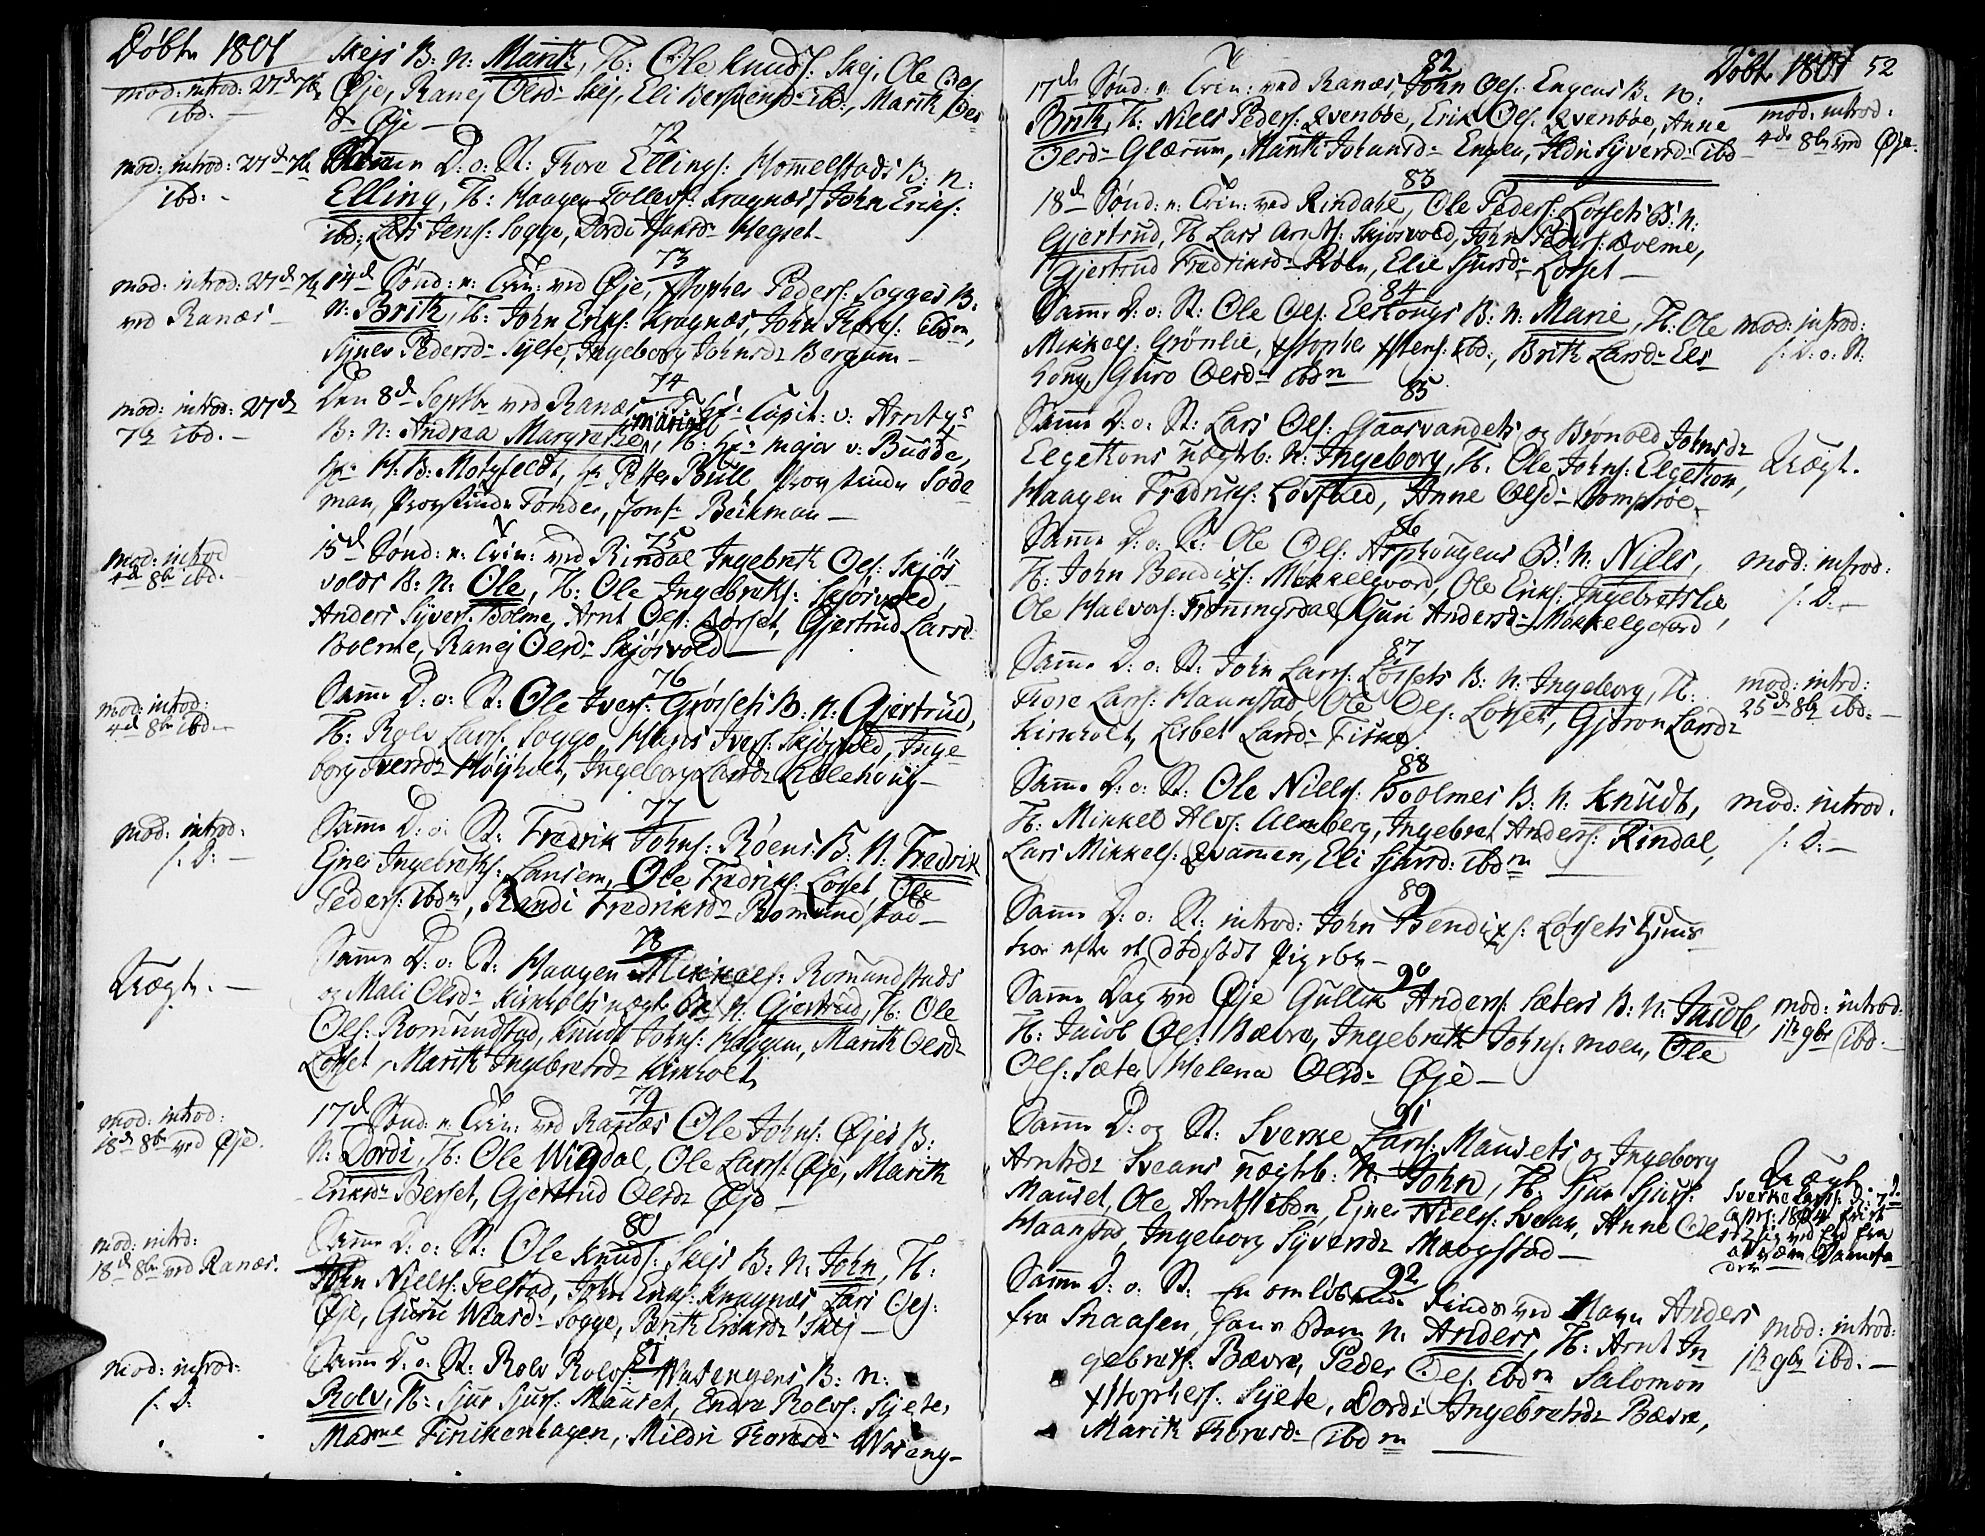 Døbte 1801
mod: introd: 27de 7br
ibd. —
Skejs B: N: Marit, T: Ole Knuds: Skej, Ole Ols:
Øje, Ranej Olsd: Skej, Eli ibd:, Marit
Øje —
72
mod: introd: 27de 7br
ibd: -
Samme D: o: St: Tore Ellings: Hommelstads B: N:
Elling, T: Haagen Tollefs: Kragnæs, John Eriks:
ibd:, Lars Jens: Sogge, Dordi Hansd: Megset
73
mod: introd: 27de 7br
ved Ranæs —
14de Sønd: e: Trin: ved Øje, Xstopher Peders: Sogges B:
N: Brit, T: John Eriks: Kragnæs, John Tores: ibdm,
Pedersd: Sylte, Ingeborg Johnsd: Bergum —
74
mod: introd: 27de
7br ibd. —
Den 8de Septbr ved Ranæs Capit: v: Arntz's
B: N: Andrea Margrethe Maria, T: Hr: Major v: Budde,
H: B: Motzfeldt, Hr: Petter Bull Provstinde Sode
man, Provstinde Tonder, Jonfr: Bekman —
75
mod: introd
4de 8br ibd. -
15de Sønd: e: Trin: ved Rindal Ingebret Ols: Skjøs
volds B: N: Ole, T: Ole Ingebrets: Skjørvold,
Anders Syvers: Bolme, Arnt Ols: Løsset, Gjertrud Larsd:
Bolme, Ranej Olsd: Skjøsvold —
76
mod: introd:
4de 8br ibd —
Samme D: o: St: Ole Ivers: Grøssets B: N: Gjertrud,
T: Rolv Lars: Sogge, Hans Ivers: Skjøsvold, Inge
borg Iversd: Høyholt, Ingeborg Larsd: Lillehoug —
77
mod: introd:
s: D: —
Samme D: o: St: Fredrik Johns: Røens B: N: Fredrik
Ejner Ingebrets: Landsem, Ole Fredriks: Løsset, Ole
Peders: ibdm, Randi Fredriksd: Romundstad —
78
Uægt. —
Samme D: o: St: Haagen Mikkels: Romundstads
og Mali Olsd: Kirkholts uægte B: N: Gjertrud, T: Ole
Ols: Romundstad, Knudt Johns: Haggen, Marit Olsd:
Løsset, Marit Ingebretsd: Kirkholt
79
mod: introd:
18de 8br ved Øje.
17de Sønd: e: Trin: ved Ranæs Ole Johns: Øjes B:
N: Dordi, T: Ole Wigdal, Ole Lars: Øje, Marit
Eriksd: Berset, Gjertrud Olsd: Øje —
80
mod: introd:
18de 8br ved Ranæs.
Samme D: o: St: Ole Knuds: Skejs B: N: John, T:
John Niels: Telstad, John Eriks: Kragnæs, Lars Ols:
Øje, Guru Sogge, Brit Eriksd: Skej —
81
mod: introd:
s: D:
Samme D: o: St: Rolv Rolvs: Wasengens B: N:
Rolv, T: Sjur Sjurs: Mauset, Endre Rolvs: Sylte,
Madme Finkenhagen, Mildri Toresd: Waseng —
Døbte 1801 52
82
17de Sønd: e: Trin: ved Ranæs, John Ols: Engens B: N:
Brit, T: Niels Peders: Qvenbøe, Erik Ols: Qvenbøe, Anne
Olsd: Glærum, Marit Johansd: Engen, Syversd: ibd —
mod: introd:
4de 8br ved Øje.
83
18de Sønd: e: Trin: ved Rindal, Ole Peders: Løssets B: N:
Gjertrud, T: Lars Arnts: Skjøsvold, John Peders: Bolme,
Gjertrud Fredriksd: Røen, Elie Sjursd: Løsset —
84
Samme D: o: St: Ole Ols: Elshougs B: N: Marie, T: Ole
Mikkels: Grønlie, Xstopher Xstens: ibd:, Brit Larsd: Els
houg, Guro Olsd: ibdm
mod: introd:
s: D: o: St:
85
Samme D: o: St: Lars Ols: Gaasvandets og Brønild Johnsd:
Elgetons uægte B: N: Ingeborg, T: Ole Johns: Elgeton,
Haagen Fredriks: Løsset, Anne Olsd:
Uægt.
86
Samme D: o: St: Ole Ols: Asphougens B: N: Niels,
T: John Bendixs: Mikkelgoord, Ole Eriks: Ingebretslie
Ole Halvors: Trønningsdal, Guri Andersd: Mikkelgoord,
mod: introd:
s: D: —
87
Samme D: o: St: John Lars: Løssets B: N: Ingeborg, T:
Tore Lars: Haanstad Ole Ols: Løsset, Gjøron Larsd:
Kirkholt, Lisbet Larsd: Fiske
mod: introd:
25de 8br ibd: —
88
Samme D: o: St: Ole Niels: Boolmes B: N: Knudt,
T: Mikkel Alvs: Almberg, Ingebret Anders: Rindal,
Lars Mikkels: Qvammen, Eli Sjursd: ibdm
mod: introd:
s: D: —
89
Samme D: o: St: introd: John Bendixs: Løssets Qvinde
kone efter et dødfødt Pigebn —
90
Samme Dag ved Øje Gullik Anders: Sæters B: N: Jacob,
T: Jacob Ols: Bævre, Ingebret Johns: Moen, Ole
Ols: Sæter, Helena Olsd: Øje —
mod: introd:
1te 9br ibd. —
91
Samme D: og St: Sverke Lars: Mausets og Ingeborg
Arntsd: Sveans uægte b: N: John, T: Sjur Sjurs:
Mauset, Ole Arnts: ibdm, Ejner Niels: Svean, Anne Ols
Haanstad, Ingeborg Syversd: Moogstad —
Uægt.
Sverke Lars: D: 7de
92
Samme D: o: St: en omløbende Finde ved Navn Anders
fra Snaasen, hans Barn N: Anders, T: Arnt In
gebrets: Bævre, Peder Ols: ibdm Salomon
Xstophers: Sylte, Dordi Ingebretsd: Bævre,
Marit Toresd: ibdm
mod: introd:
1te 9br ibd. —